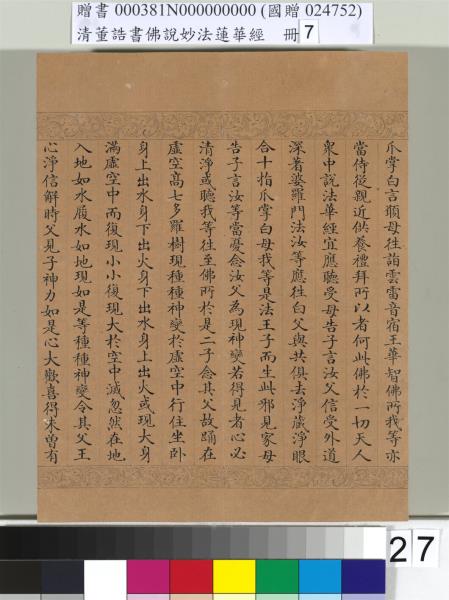 贈書 000381N000000000 (國贈 024752)
清董誥書佛說妙法蓮華經 冊 7
爪掌白言願母往詣雲雷音宿王華智佛所我等亦
當侍從親近供養禮拜所以者何此佛於一切天人
衆中說法華經宜應聽受母告子言汝父信受外道
深著婆羅門法汝等應往白父與共俱去淨藏淨眼
合十指爪掌白母我等是法王子而生此邪見家母
告子言汝等當憂念汝父為現神變若得見者心必
清淨或聽我等往至佛所於是二子念其父故踊在
虛空高七多羅樹現種種神變於虛空中行住坐卧
身上出水身下出火身下出水身上出火或現大身
滿虛空中而復現小小復現大於空中滅忽然在地
入地如水履水如地現如是等種種神變令其父王
心淨信解時父見子神力如是心大歡喜得未曾有
27